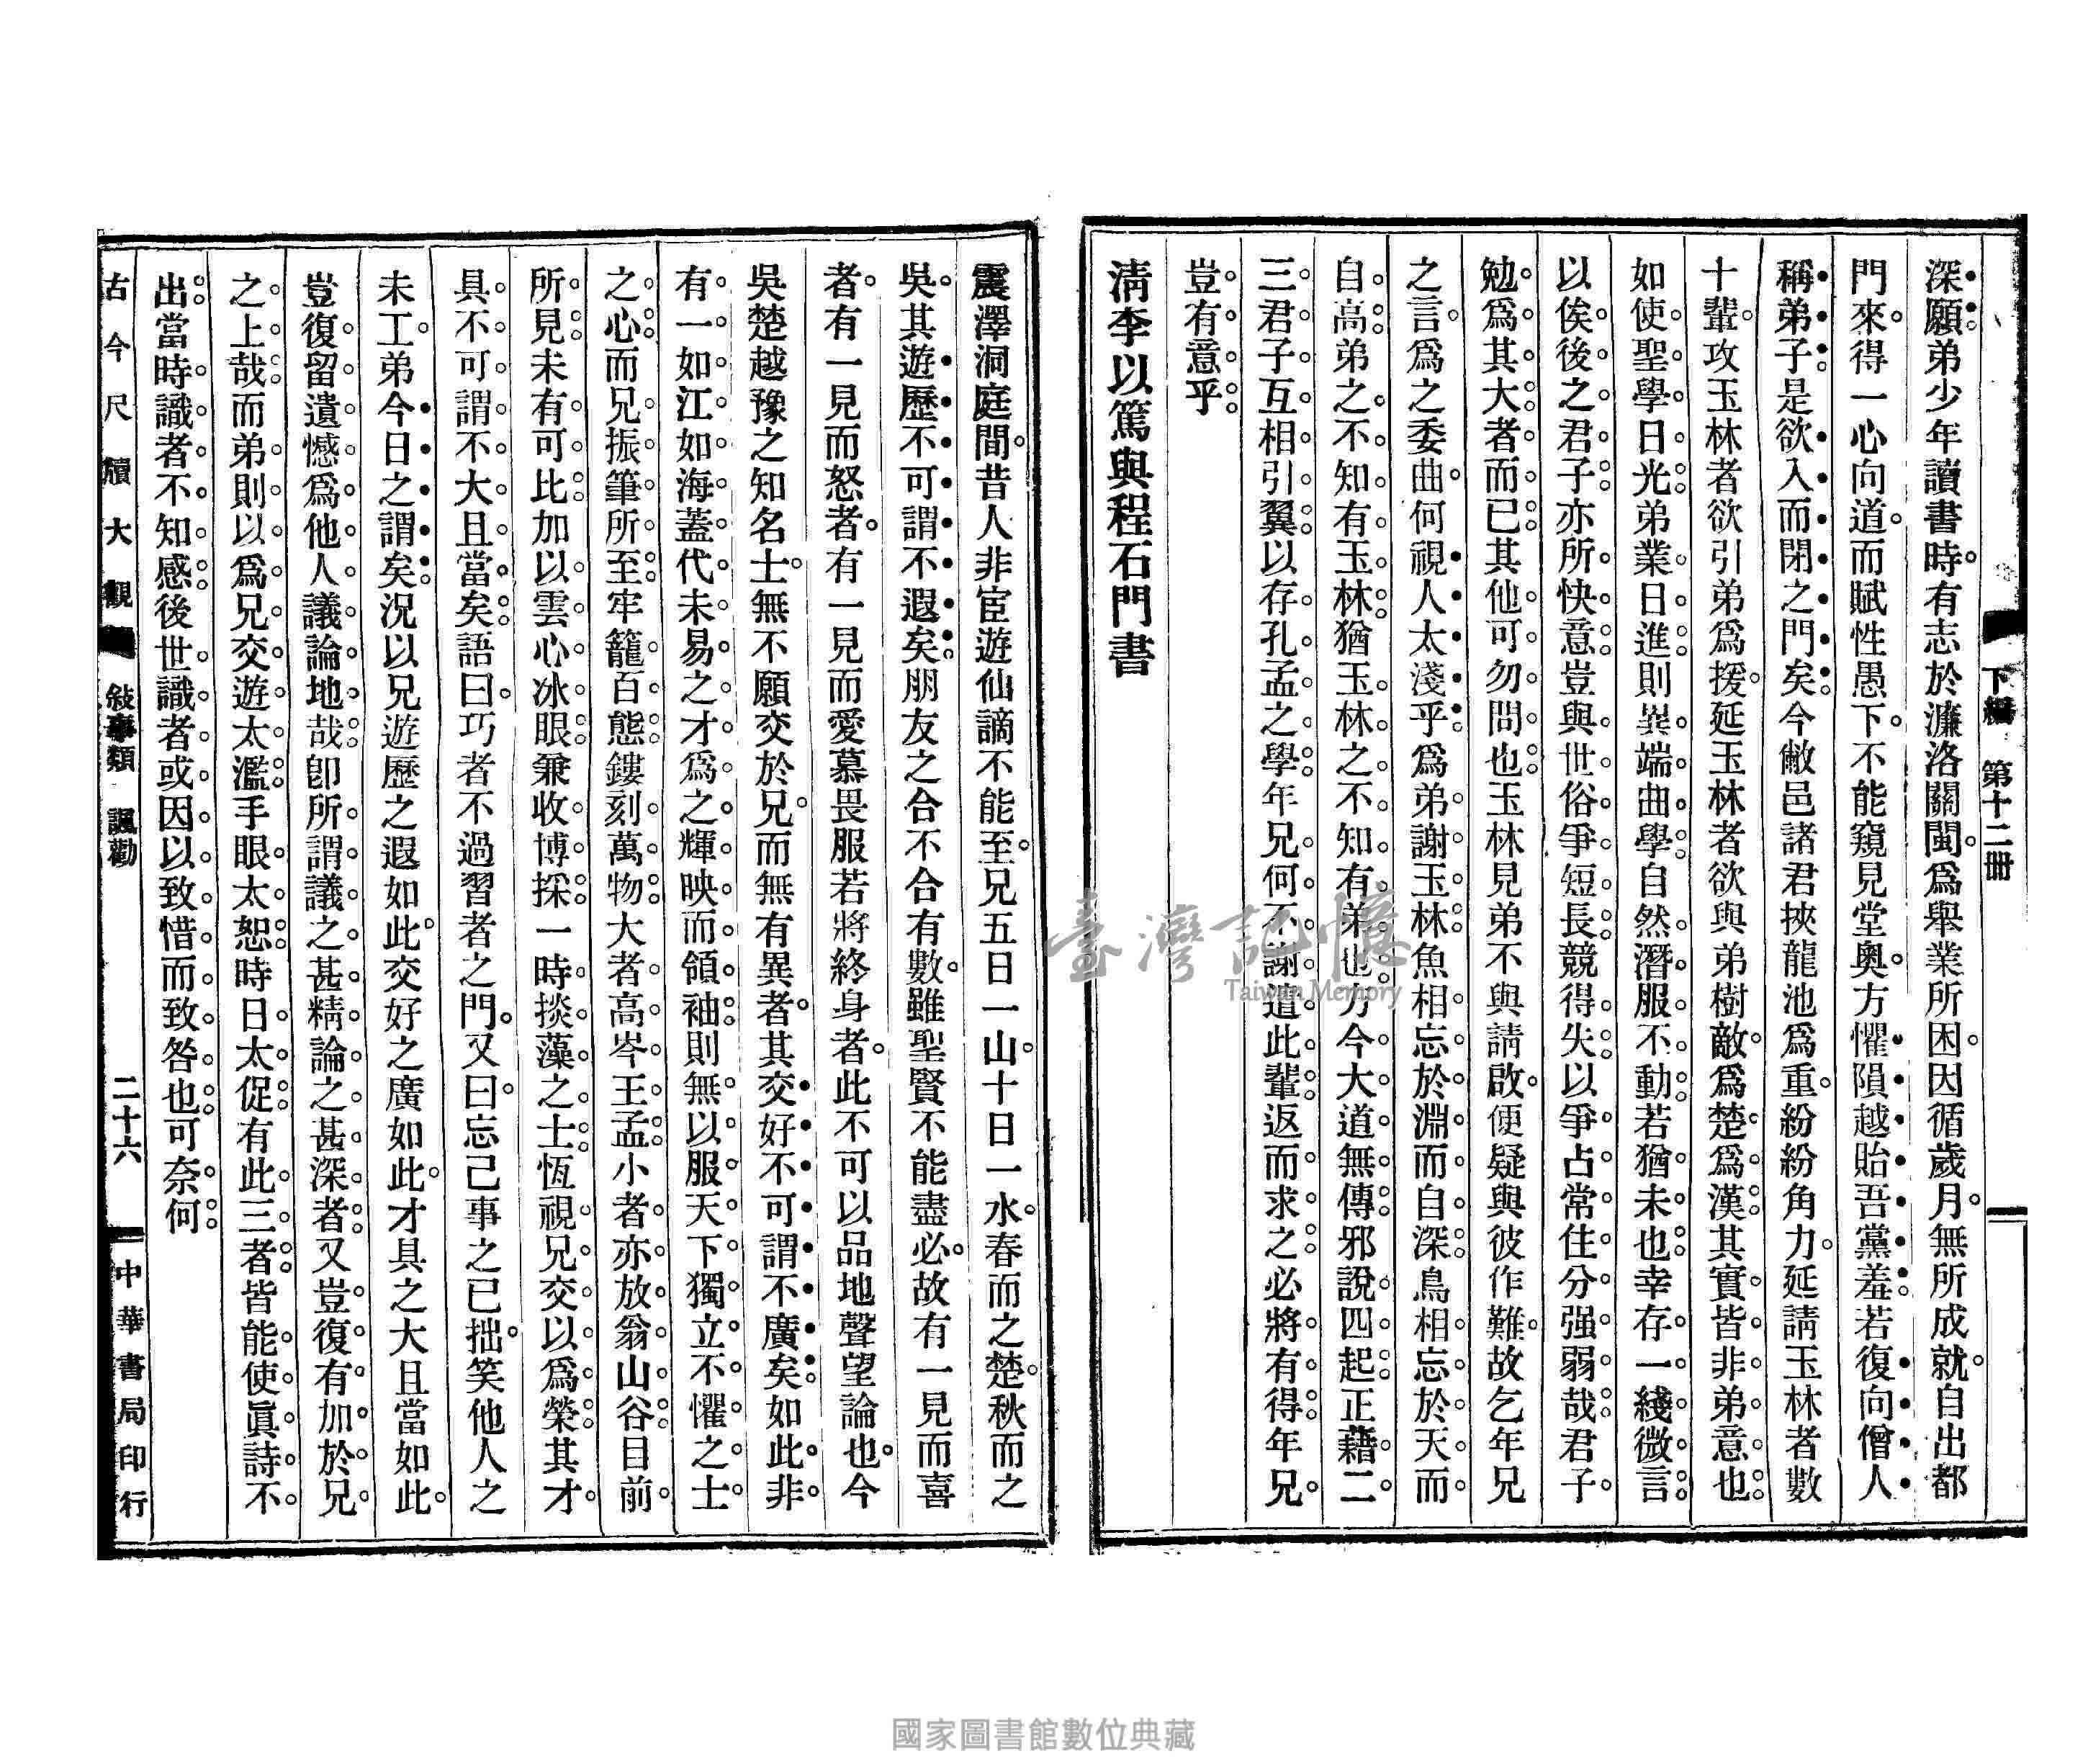 下編　第十二冊
深願弟少年讀書時。有志於濂洛關閩。爲舉業所困。因循歲月。無所成就。自出都
門來。得一心向道。而賦性愚下。不能窺見堂奧。方懼隕越貽吾黨羞。若復向僧人
稱弟子。是欲入而閉之門矣。今敝邑諸君挾龍池爲重。紛紛角力。延請玉林者數
十輩。攻玉林者欲引弟爲援。延玉林者欲與弟樹敵。爲楚爲漢。其實皆非弟意也。
如使聖學日光。弟業日進。則異端曲學。自然潛服不動。若猶未也。幸存一綫微言。
以俟後之君子。亦所快意。豈與世俗爭短長競得失。以爭占常住分强弱哉。君子
勉爲其大者而已。其他可勿問也。玉林見弟不與請啟。便疑與彼作難。故乞年兄
之言。爲之委曲。何視人太淺乎。爲弟謝玉林。魚相忘於淵而自深。鳥相忘於天而
自高。弟之不知有玉林。猶玉林之不知有弟也。方今大道無傳。邪說四起。正藉二
三君子。互相引翼。以存孔孟之學。年兄何不謝遣此輩。返而求之。必將有得。年兄
豈有意乎。
清李以篤與程石門書
震澤洞庭間。昔人非宦遊仙謫不能至。兄五日一山。十日一水。春而之楚。秋而之
吳。其遊歷不可謂不遐矣。朋友之合不合有數。雖聖賢不能盡必。故有一見而喜
者。有一見而怒者。有一見而愛慕畏服若將終身者。此不可以品地聲望論也。今
吳楚越豫之知名士。無不願交於兄。而無有異者。其交好不可謂不廣矣。如此非
有一如江如海蓋代未易之才。爲之輝映而領袖。則無以服天下獨立不懼之士
之心。而兄振筆所至。牢籠百態。鏤刻萬物。大者高岑王孟。小者亦放翁山谷。目前
所見。未有可比。加以雲心冰眼。兼收博採。一時掞藻之士。恆視兄交以爲榮。其才
具不可謂不大且當矣。語曰。巧者不過習者之門。又曰。忘己事之已拙。笑他人之
未工。弟今日之謂矣。況以兄遊歷之遐如此。交好之廣如此。才具之大且當如此。
豈復留遺憾爲他人議論地哉。卽所謂議之甚精。論之甚深者。又豈復有加於兄
之上哉。而弟則以爲兄交遊太濫。手眼太恕。時日太促。有此三者。皆能使眞詩不
出。當時識者不知感。後世識者或因以致惜而致咎也。可奈何。
古今尺牘大觀　敍事類　諷勸　二十六　中華書局印行
臺灣記憶
Taiwan Memory
國家圖書館數位典藏